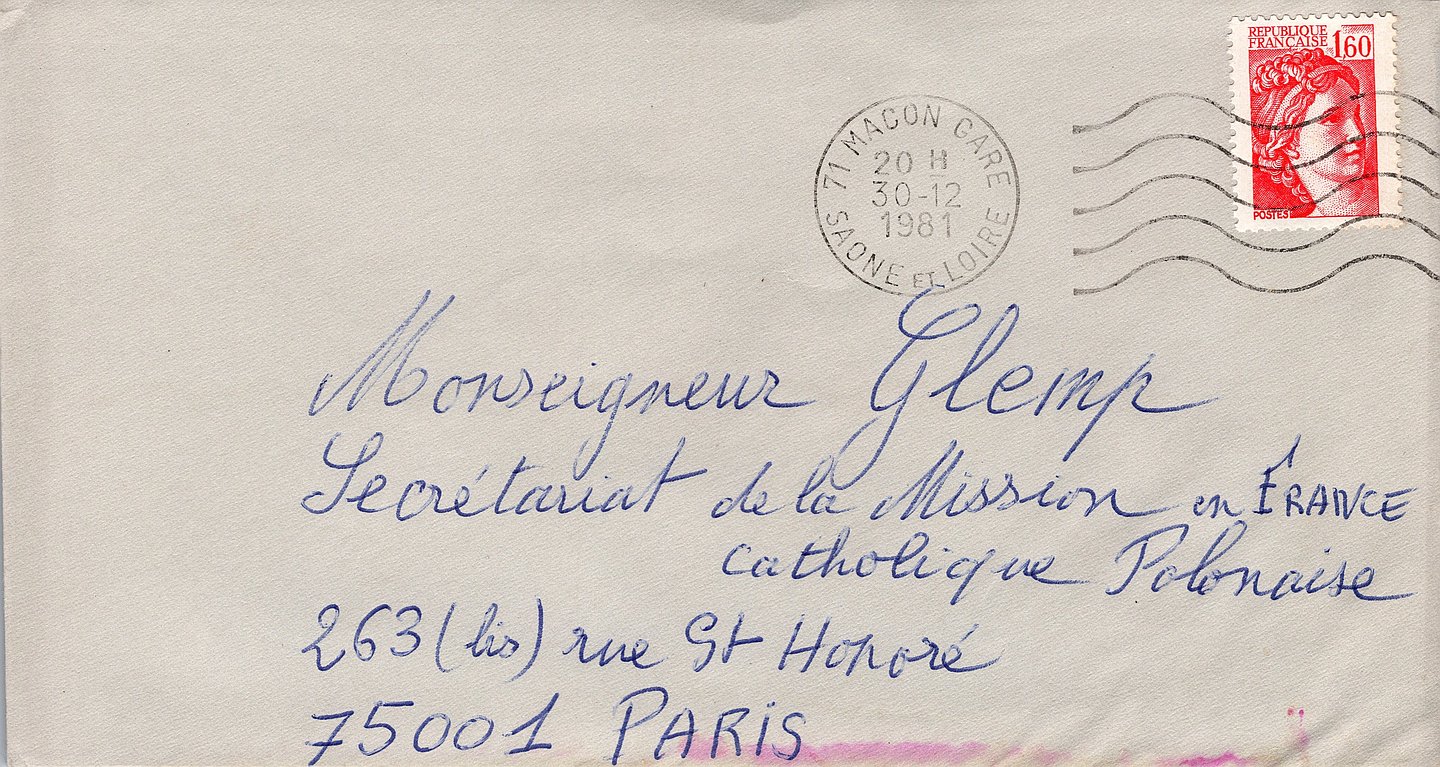 REPUBLIQUE
FRANÇAISE 1,60
POSTES
71 MACON GARE
20 H
30-12
1981
SAONE ET LOIRE
Monseigneur Glemp
Secrétariat de la Mission en FRANCE
catholique Polonaise
263 (bis) rue St Honoré
75001 PARIS